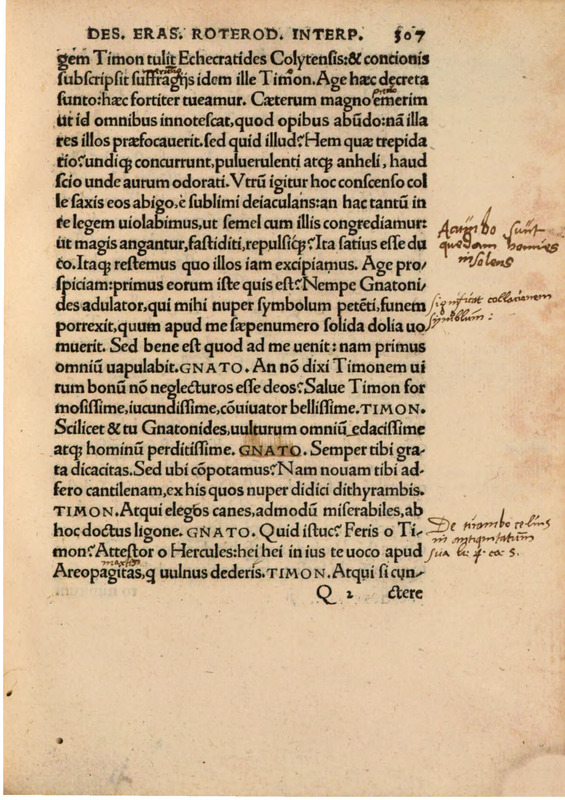 DES. ERAS. ROTEROD. INTERP. 307
gem Timon tulit Echecratides Colytensis:& contionis
subscripsit suffragijs idem ille Timon. Age hæc decreta
sunto:hæc fortiter tueamur. Cæterum magno emerim
ut id omnibus innotescat,quod opibus abũdo:nã illa
res illos præfocauerit.sed quid illud? Hem quæ trepida
tio?undiq; concurrunt,puluerulenti atq; anheli, haud
scio unde aurum odorati. Vtrũ igitur hoc conscenso col
le saxis eos abigo,e sublimi deiaculans:an hac tantũ in
re legem uiolabimus,ut semel cum illis congrediamur:
ut magis angantur,fastiditi,repulsiq;? Ita satius esse du
co. Itaq; restemus quo illos iam excipiamus. Age pro-
spiciam:primus eorum iste quis est? Nempe Gnatoni-
des adulator,qui mihi nuper symbolum petẽti,funem
porrexit,quum apud me sæpenumero solida dolia uo
muerit. Sed bene est quod ad me uenit: nam primus
omniũ uapulabit. GNATO. An nõ dixi Timonem ui
rum bonũ nõ neglecturos esse deos? Salue Timon for
mosissime,iucundissime,cõuiuator bellissime. TIMON.
Scilicet & tu Gnatonides,uulturum omniũ edacissime
atq; hominũ perditissime. GNATO. Semper tibi gra-
ta dicacitas. Sed ubi cõpotamus? Nam nouam tibi ad-
fero cantilenam,ex his quos nuper didici dithyrambis.
TIMON. Atqui elegos canes,admodũ miserabiles,ab
hoc doctus ligone. GNATO. Quid istuc? Feris o Ti-
mon? Attestor o Hercules:hei hei in ius te uoco apud
Areopagitas,q uulnus dederis. TIMON. Atqui si cun-
Q 2 ctere
sunt
quedam
significat collacionem
symbolum:
De
in antiquitatum
sua